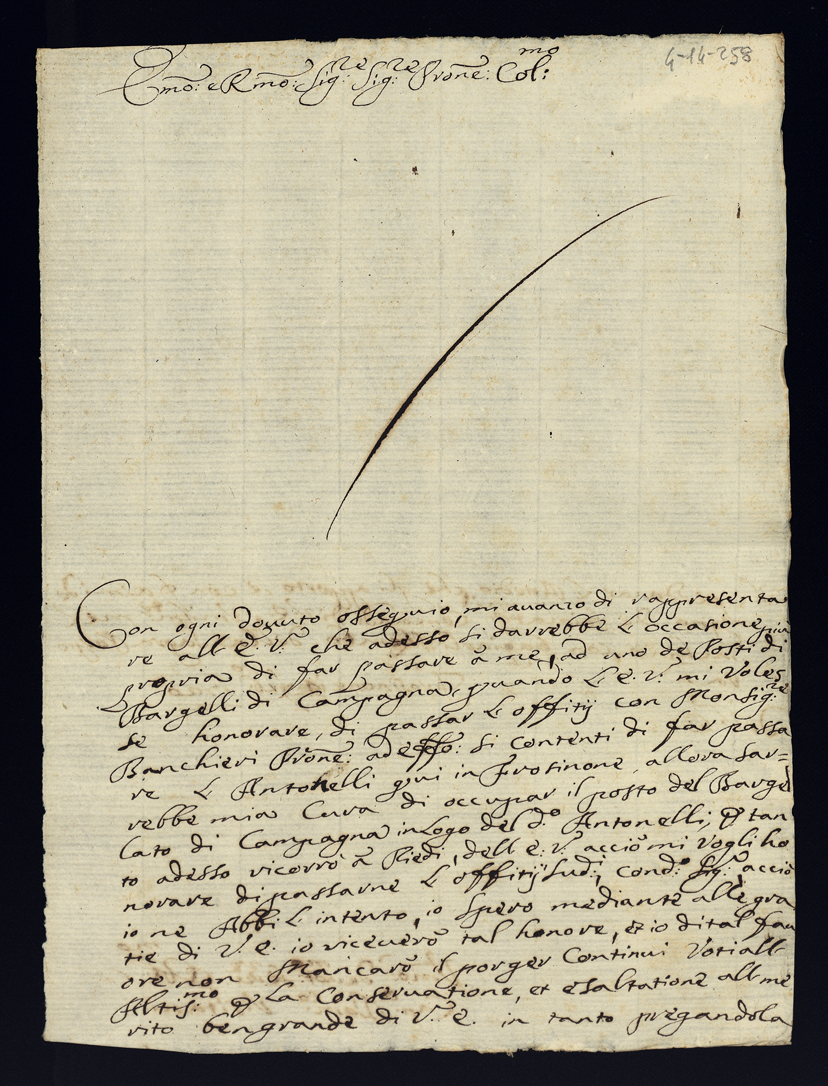 4-14-258
Emo: e Rmo: Sig:re Sig:re Prone: Col:mo
Con ogni douuto ossequio, mi auanzo di rappresenta
re all E. V. che adesso si darrebbe L occasione piu
propria di far passare à me, ad uno de Posti di
Bargelli di Campagna, quando L E. V. mi Voles
se honorare, di passar L offitij con Monsig:re
Banchieri Prone: adeffo: si contenti di far passa
re L Antonelli qui in Frosinone, allora sar=
rebbe mia Cura di occupar il posto del Bargel
lato di Campagna in Logo del d.o Antonelli, p tan
to adesso ricorrò à Piedi, dell E. V. acciò mi Vogli ho
norare di passarne L offitij sud.i, con d.o Sig:re, acciò
io ne Abbi L intento, io spero mediante alle gra
tie di V. E. io riceuerò tal honore, et io di tal fau
ore non Mancarò il porger Continui Voti all
Altis:mo p La Conseruatione, et esaltatione all me
rito ben grande di V. E. in tanto pregandola